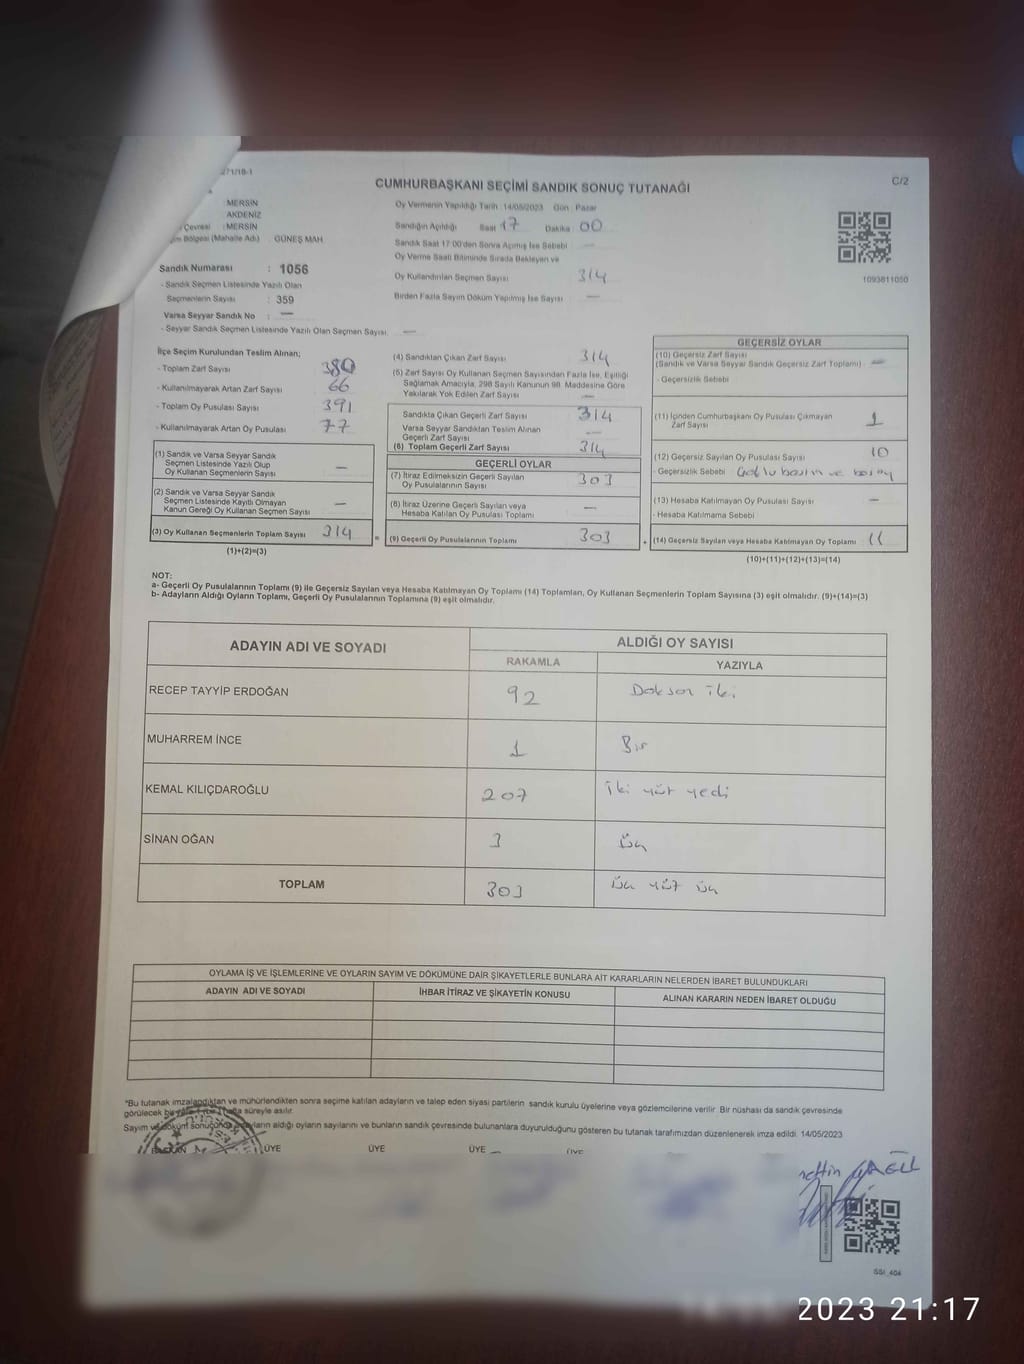 271/18-1
C/2
CUMHURBAŞKANI SEÇİMİ SANDIK SONUÇ TUTANAĞI
MERSİN
AKDENİZ
Çevresi : MERSİN
Bölgesi (Mahalle Adı) : GÜNEŞ MAH
Sandık Numarası : 1056
- Sandık Seçmen Listesinde Yazılı Olan
Seçmenlerin Sayısı : 359
Varsa Seyyar Sandık No : —
- Seyyar Sandık Seçmen Listesinde Yazılı Olan Seçmen Sayısı: —
Oy Vermenin Yapıldığı Tarih : 14/05/2023 Gün : Pazar
Sandığın Açıldığı Saat : 17 Dakika : 00
Sandık Saat 17:00'den Sonra Açılmış İse Sebebi —
Oy Verme Saati Bitiminde Sırada Bekleyen ve
Oy Kullandırılan Seçmen Sayısı 314
Birden Fazla Sayım Döküm Yapılmış İse Sayısı —
1093811050
İlçe Seçim Kurulundan Teslim Alınan;
- Toplam Zarf Sayısı 380
- Kullanılmayarak Artan Zarf Sayısı 66
- Toplam Oy Pusulası Sayısı 391
- Kullanılmayarak Artan Oy Pusulası 77
(1) Sandık ve Varsa Seyyar Sandık
Seçmen Listesinde Yazılı Olup
Oy Kullanan Seçmenlerin Sayısı —
(2) Sandık ve Varsa Seyyar Sandık
Seçmen Listesinde Kayıtlı Olmayan
Kanun Gereği Oy Kullanan Seçmen Sayısı —
(3) Oy Kullanan Seçmenlerin Toplam Sayısı 314
(1)+(2)=(3)
(4) Sandıktan Çıkan Zarf Sayısı 314
(5) Zarf Sayısı Oy Kullanan Seçmen Sayısından Fazla İse, Eşitliği
Sağlamak Amacıyla, 298 Sayılı Kanunun 98. Maddesine Göre
Yakılarak Yok Edilen Zarf Sayısı —
Sandıkta Çıkan Geçerli Zarf Sayısı 314
Varsa Seyyar Sandıktan Teslim Alınan
Geçerli Zarf Sayısı —
(6) Toplam Geçerli Zarf Sayısı 314
GEÇERLİ OYLAR
(7) İtiraz Edilmeksizin Geçerli Sayılan
Oy Pusulalarının Sayısı 303
(8) İtiraz Üzerine Geçerli Sayılan veya
Hesaba Katılan Oy Pusulası Toplamı —
= (9) Geçerli Oy Pusulalarının Toplamı 303
GEÇERSİZ OYLAR
(10) Geçersiz Zarf Sayısı
(Sandık ve Varsa Seyyar Sandık Geçersiz Zarf Toplamı) —
- Geçersizlik Sebebi
(11) İçinden Cumhurbaşkanı Oy Pusulası Çıkmayan
Zarf Sayısı 1
(12) Geçersiz Sayılan Oy Pusulası Sayısı 10
- Geçersizlik Sebebi ve
(13) Hesaba Katılmayan Oy Pusulası Sayısı —
- Hesaba Katılmama Sebebi
+ (14) Geçersiz Sayılan veya Hesaba Katılmayan Oy Toplamı 11
(10)+(11)+(12)+(13)=(14)
NOT:
a- Geçerli Oy Pusulalarının Toplamı (9) ile Geçersiz Sayılan veya Hesaba Katılmayan Oy Toplamı (14) Toplamları, Oy Kullanan Seçmenlerin Toplam Sayısına (3) eşit olmalıdır. (9)+(14)=(3)
b- Adayların Aldığı Oyların Toplamı, Geçerli Oy Pusulalarının Toplamına (9) eşit olmalıdır.
ADAYIN ADI VE SOYADI
ALDIĞI OY SAYISI
RAKAMLA YAZIYLA
RECEP TAYYİP ERDOĞAN 92 Doksan iki
MUHARREM İNCE 1 Bir
KEMAL KILIÇDAROĞLU 207 İki yüz yedi
SİNAN OĞAN 3 Üç
TOPLAM 303 Üç yüz üç
OYLAMA İŞ VE İŞLEMLERİNE VE OYLARIN SAYIM VE DÖKÜMÜNE DAİR ŞİKAYETLERLE BUNLARA AİT KARARLARIN NELERDEN İBARET BULUNDUKLARI
ADAYIN ADI VE SOYADI İHBAR İTİRAZ VE ŞİKAYETİN KONUSU ALINAN KARARIN NEDEN İBARET OLDUĞU
*Bu tutanak imzalandıktan ve mühürlendikten sonra seçime katılan adayların ve talep eden siyasi partilerin sandık kurulu üyelerine veya gözlemcilerine verilir. Bir nüshası da sandık çevresinde
görülecek bir yere 1 (bir) hafta süreyle asılır.
Sayım ve döküm sonuçunda adayların aldığı oyların sayılarını ve bunların sandık çevresinde bulunanlara duyurulduğunu gösteren bu tutanak tarafımızdan düzenlenerek imza edildi. 14/05/2023
BAŞKAN ÜYE ÜYE ÜYE ÜYE
SSI_404
2023 21:17